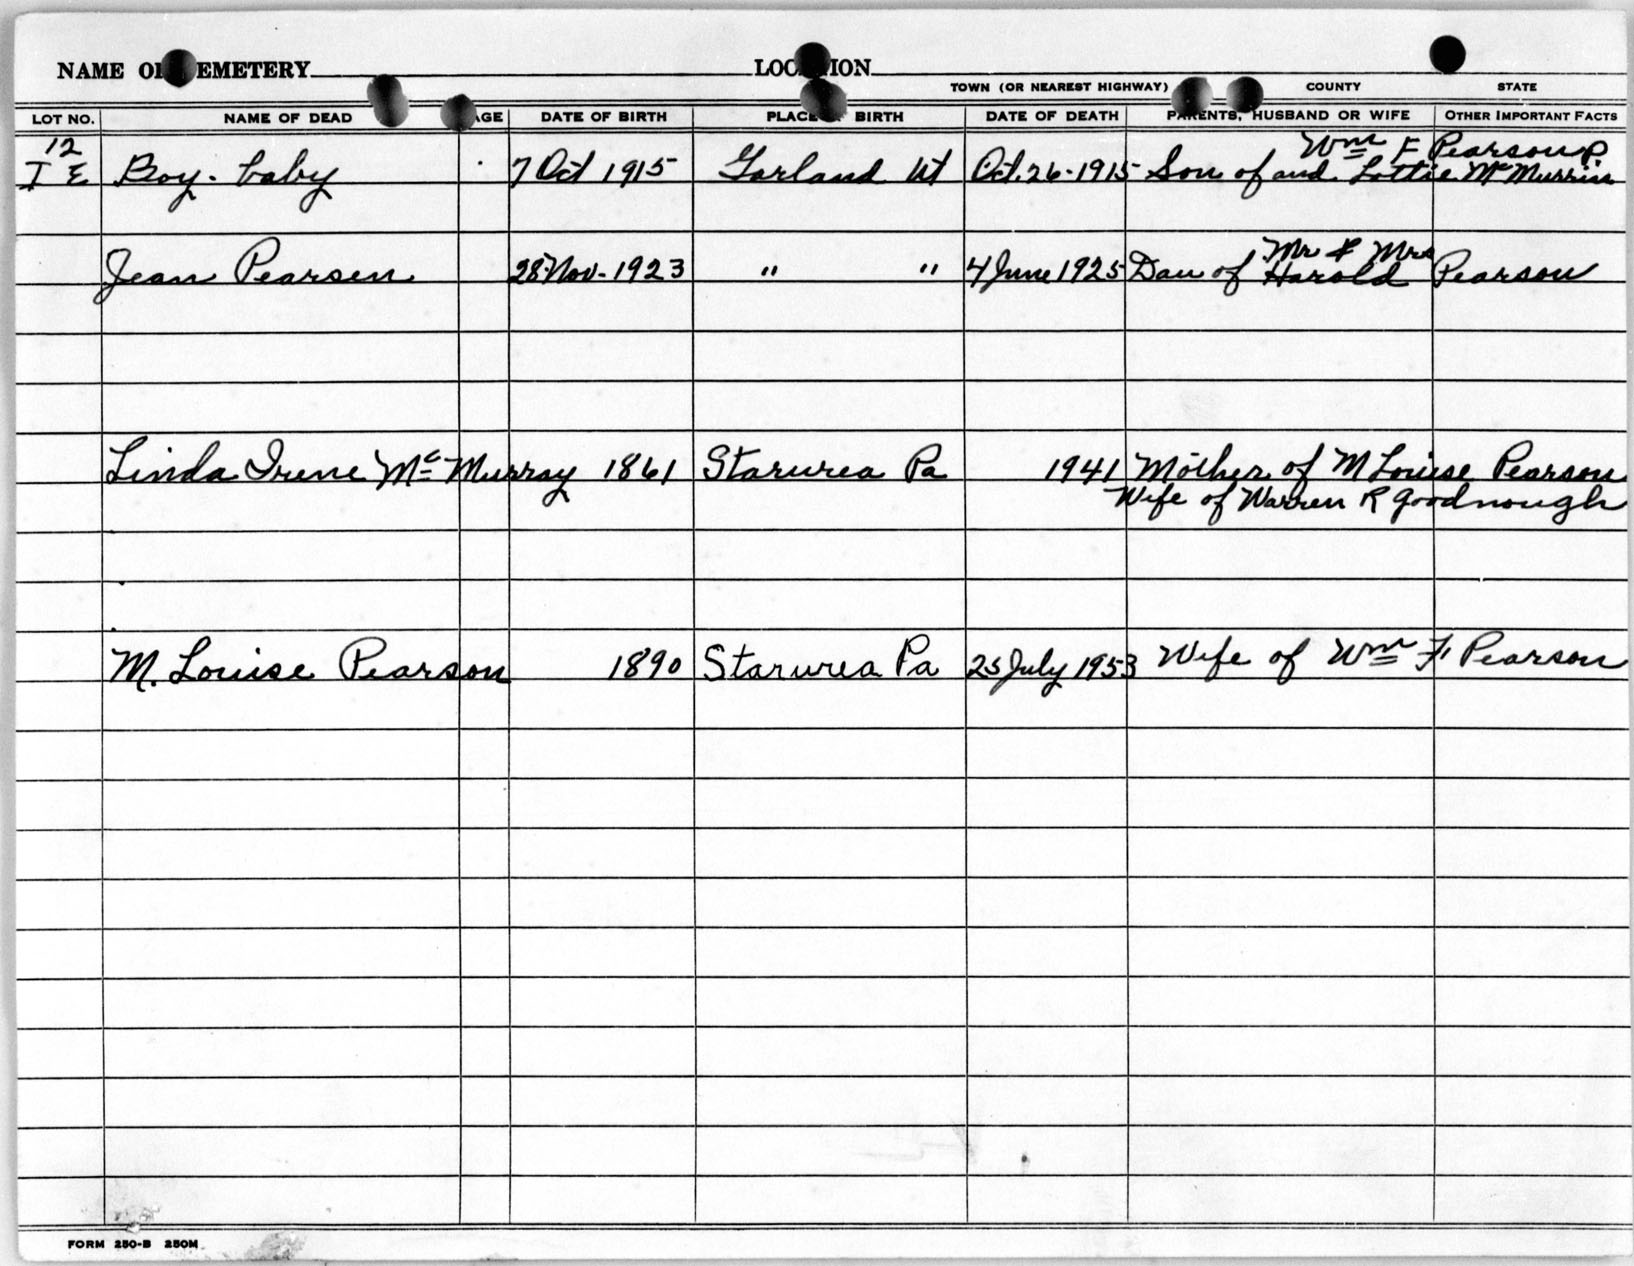 NAME OF EMETERY LOC ION
TOWN (OR NEAREST HIGHWAY) COUNTY STATE
LOT NO. NAME OF DEAD AGE DATE OF BIRTH PLACE BIRTH DATE OF DEATH PARENTS, HUSBAND OR WIFE OTHER IMPORTANT FACTS
12 Wm F Pearson P.
I E Boy. baby 7 Oct 1915 Garland Ut Oct. 26-1915 Son of and Lottie McMurrin
Mr & Mrs
Jean Pearsen 28 Nov. 1923 " " 4 June 1925 Dau of Harold Pearson
Linda Irene Mc Murray 1861 Starurea Pa 1941 Mother of M Louise Pearson
Wife of Warren R Goodnough
M. Louise Pearson 1890 Starurea Pa 25 July 1953 Wife of Wm F. Pearson
FORM 250-B 250M